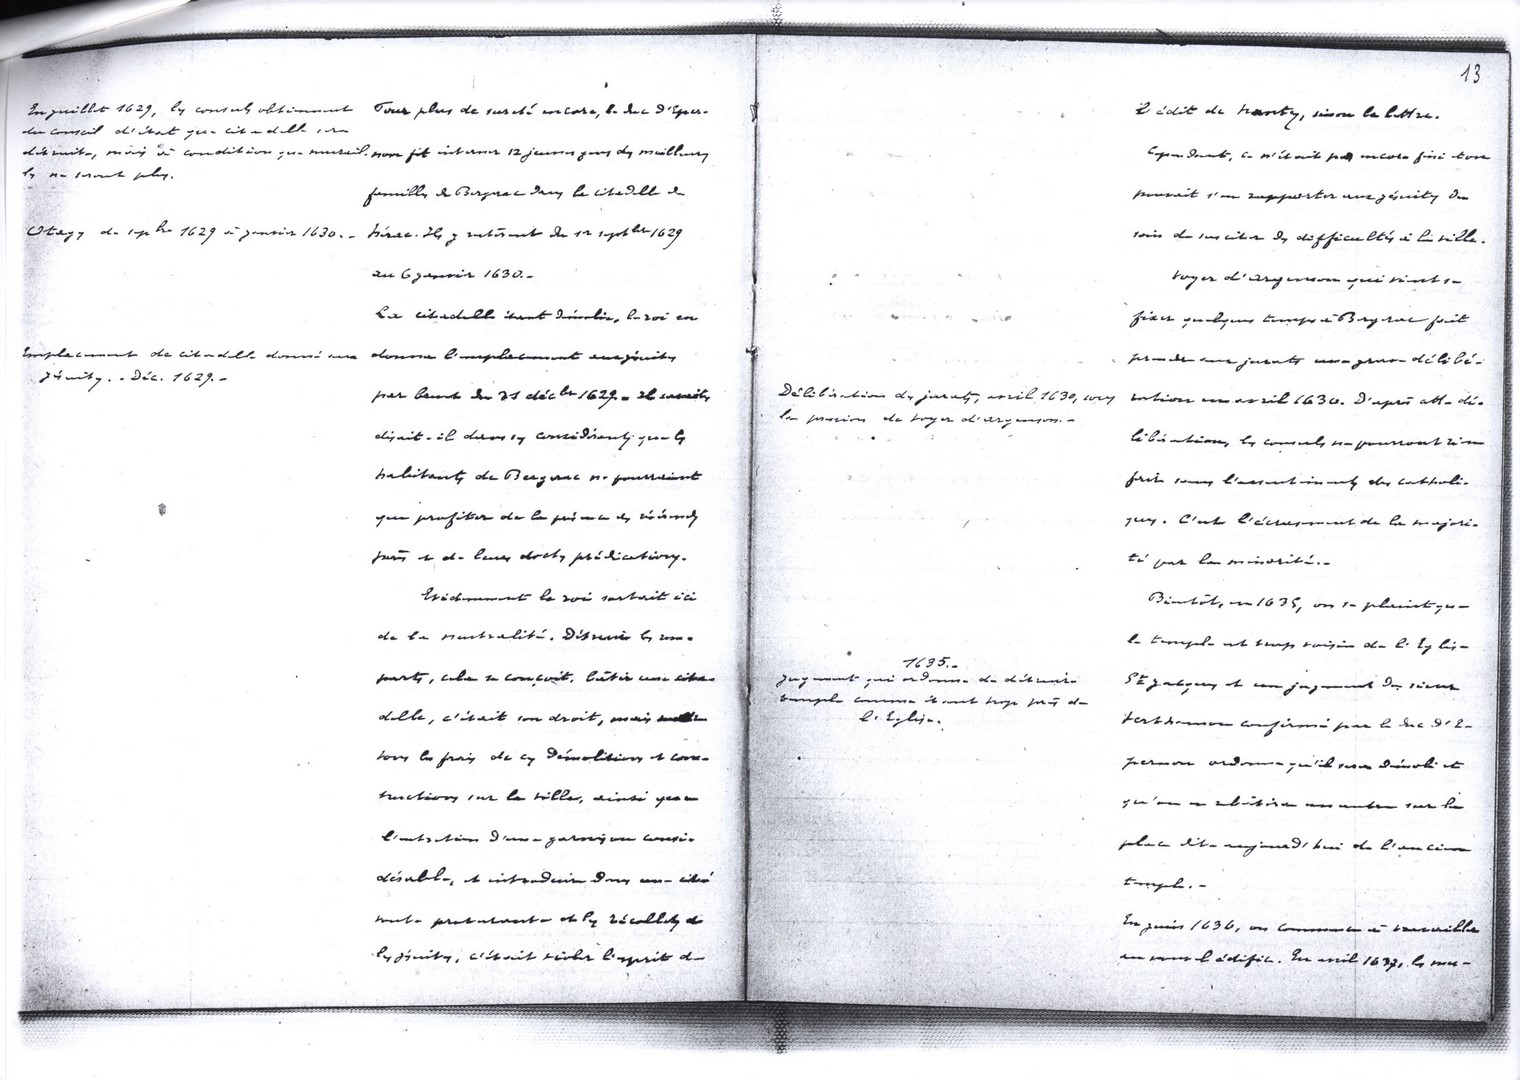 En juillet 1629, les consuls obtiennent
du conseil d'état que citadelle sera
détruite, mais à condition que murail-
les ne seront plus.
Otages de sepbre 1629 à janvier 1630.-
Emplacement de citadelle donné aux
Jésuites. - Déc. 1629.-
Pour plus de sureté encore, le duc d'Eper-
non fit interner 12 jeunes gens des meilleures
familles de Bergerac dans la citadelle de
Nérac. Ils y restèrent du 1er septbre 1629
au 6 janvier 1630.-
La citadelle étant démolie, le roi en
donne l'emplacement aux jésuites
par brevet du 31 décbre 1629.-
disait-il dans ses considérants que les
habitants de Bergerac ne pourraient
que profiter de la présence des révérends
pères et de leurs doctes prédications.
Evidemment le roi sortait ici
de la neutralité. Détruire les rem-
parts, cela se conçoit, bâtir une cita-
delle, c'était son droit, mais mettre
tous les frais de ces démolitions et cons-
tructions sur la ville, ainsi que
l'entretien d'une garnison consi-
dérable, et introduire dans une cité
toute protestante et les récollets et
les jésuites, c'était violer l'esprit de
13
L'édit de Nantes, sinon la lettre.
Cependant, ce n'était pas encore fini et on
pouvait s'en rapporter aux jésuites du
soin de susciter des difficultés à la ville.
Voyer d'Argenson qui vint se
fixer quelques temps à Bergerac fait
prendre aux jurats une grave délibé-
ration en avril 1630. D'après cette dé-
libération, les consuls ne pourront rien
faire sans l'assentiment des catholi-
ques. C'est l'écrasement de la majori-
té par la minorité.-
Bientôt, en 1635, on se plaint que
le temple est trop voisin de l'Eglise
St Jacques et un jugement du sieur
Verthamon confirmé par le duc d'E-
pernon ordonne qu'il sera démoli et
qu'on en rebâtira un autre sur la
place dite aujourd'hui de l'ancien
temple.-
En juin 1636, on commence à travailler
au nouvel édifice. En avril 1637, les
Délibération des jurats, avril 1630, sous
la pression de Voyer d'Argenson.-
1635.-
Jugement qui ordonne de détruire
temple comme étant trop près de
l'Eglise.